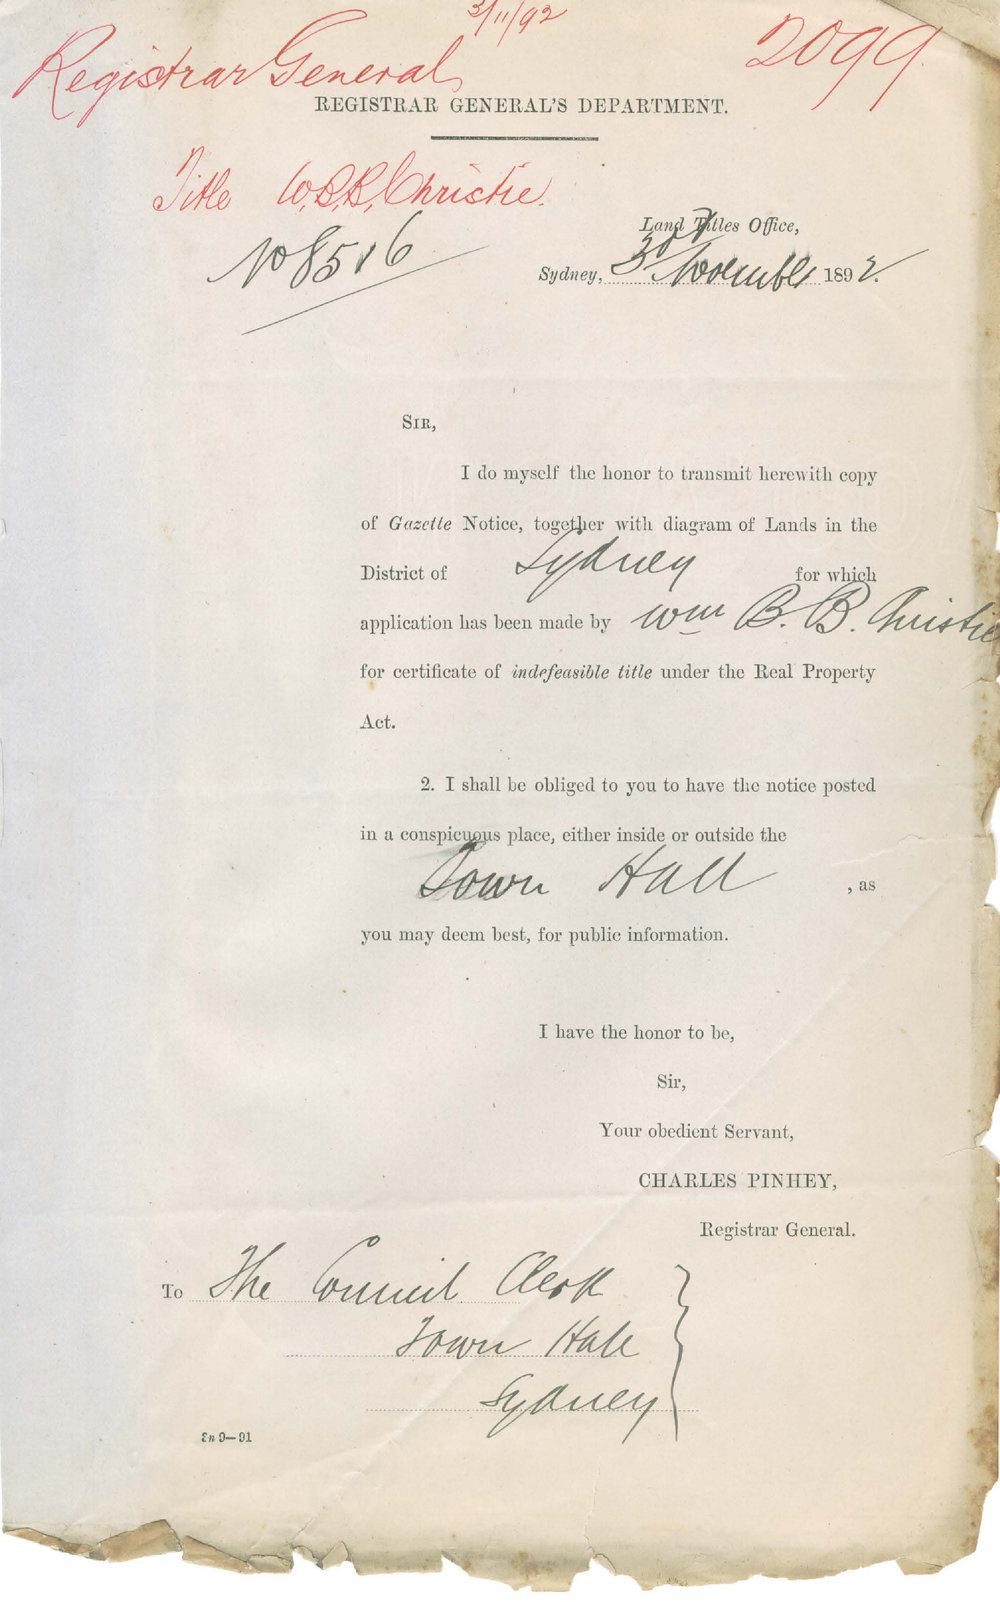 3/11/92
Registrar General
2099
REGISTRAR GENERAL'S DEPARTMENT.
Title W.B.B. Christie.
No 8516
Land Titles Office,
Sydney, 3rd November 1892.
SIR,
I do myself the honor to transmit herewith copy
of Gazette Notice, together with diagram of Lands in the
District of Sydney for which
application has been made by Wm B. B. Christie
for certificate of indefeasible title under the Real Property
Act.
2. I shall be obliged to you to have the notice posted
in a conspicuous place, either inside or outside the
Town Hall , as
you may deem best, for public information.
I have the honor to be,
Sir,
Your obedient Servant,
CHARLES PINHEY,
Registrar General.
To The Council Clerk
Town Hall
Sydney
9—91